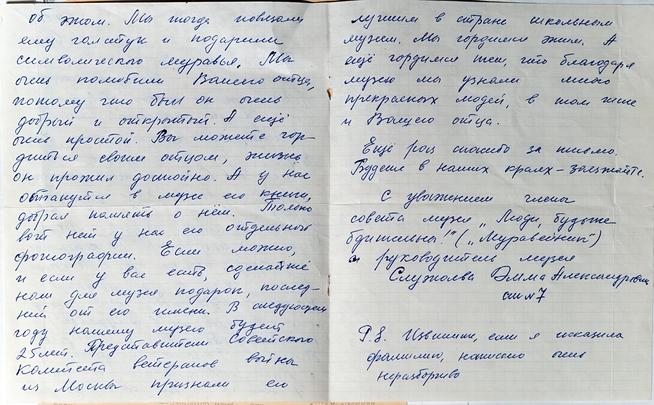 об этом. Мы тогда повязали
ему галстук и подарили
символического муравья. Мы
очень полюбили Вашего отца,
потому что был он очень
добрый и открытый. А ещё
очень простой. Вы можете гор-
диться своим отцом, жизнь
он прожил достойно. А у нас
останутся в музее его книги,
добрая память о нём. Только
вот нет у нас его отдельной
фотографии. Если можно,
и если у вас есть, сделайте
нам для музея подарок, послед-
ний от его имени. В следующем
году нашему музею будет
25 лет. Представители Советского
комитета ветеранов войны
из Москвы признали его
лучшим в стране школьным
музеем. Мы гордимся этим. А
ещё гордимся тем, что благодаря
музею мы узнали много
прекрасных людей, в том числе
и Вашего отца.
Ещё раз спасибо за письмо.
Будете в наших краях – заезжайте.
С уважением члены
совета музея „Люди, будьте
бдительны!" („Муравейник")
и руководитель музея
Эмма Александровна
P.S. Извините, если я исказила
фамилию, написано очень
неразборчиво